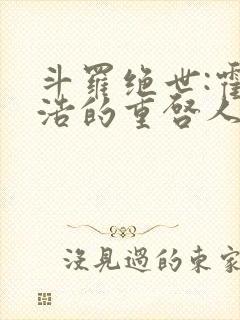 斗羅绝世:霍
浩的重啓人
沒見過的東家